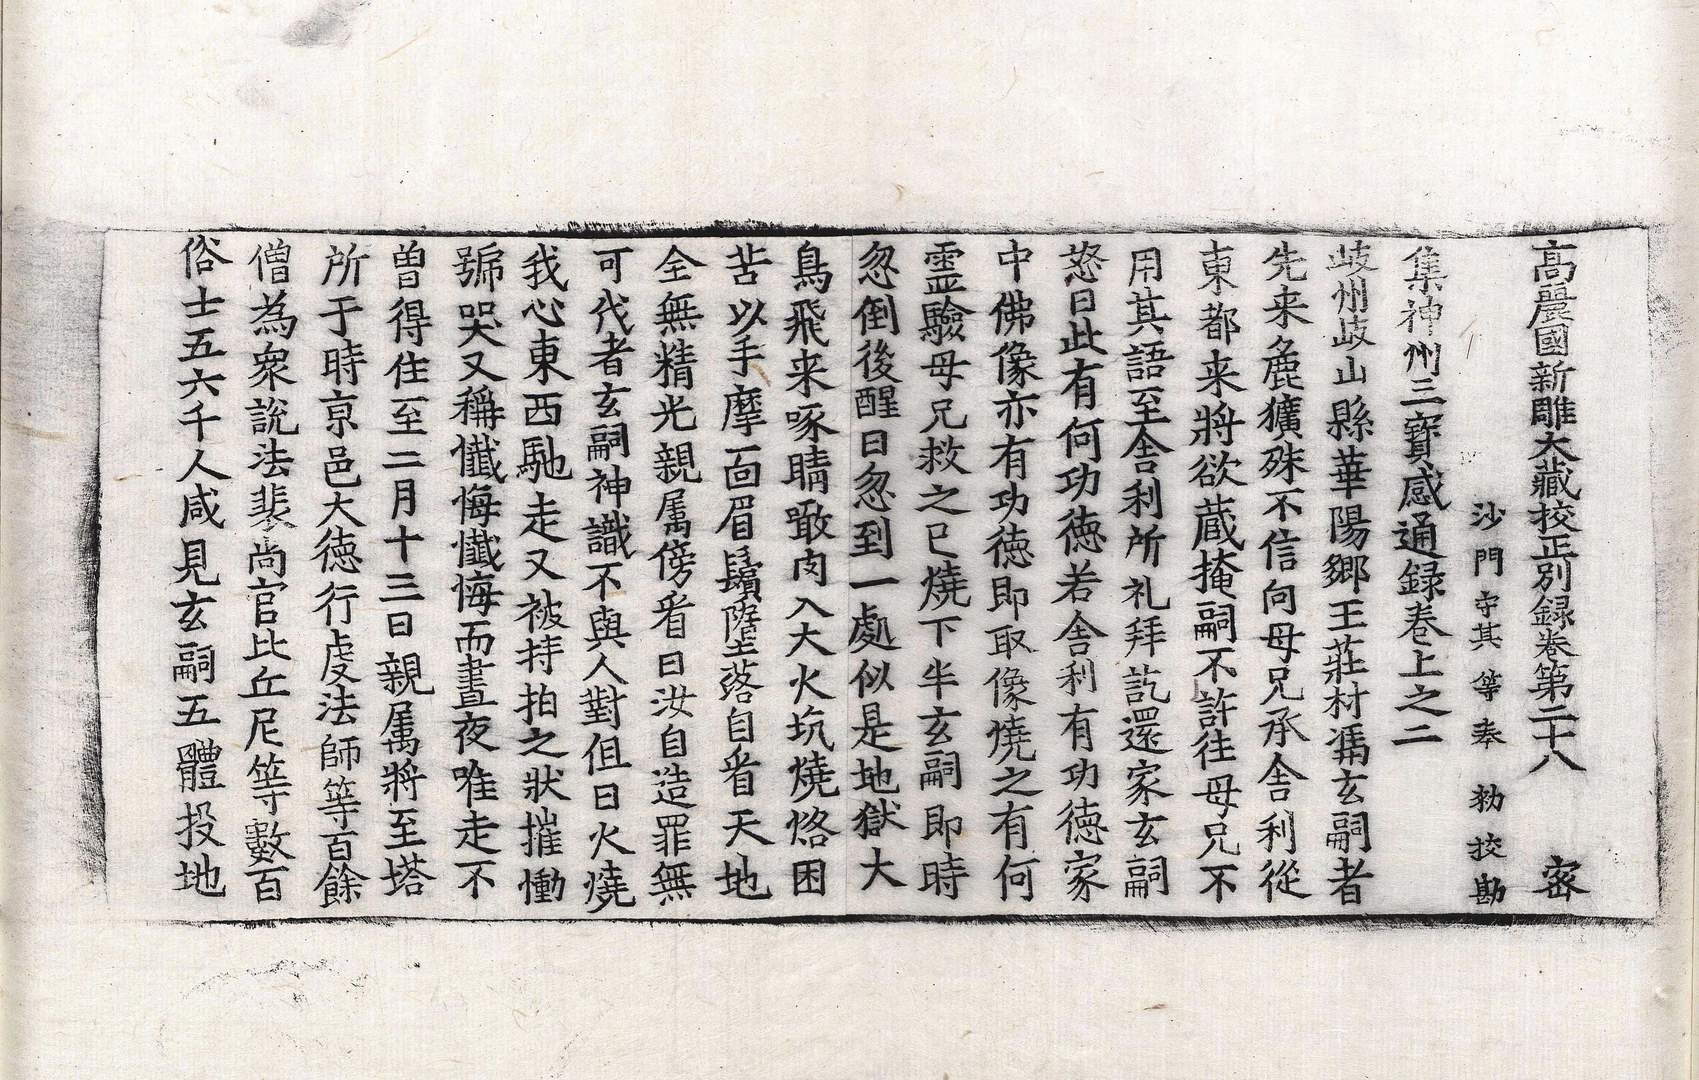 高麗國新雕大藏校正別録卷第二十八　密
沙門守其等奉　勑挍勘
集神州三寶感通録卷上之二
歧州歧山縣華陽鄉王莊村馮玄嗣者
先来麁獷殊不信向母兄承舍利從
東都来將欲藏掩嗣不許往母兄不
用其語至舍利所礼拜訖還家玄嗣
怒曰此有何功徳若舎利有功徳家
中佛像亦有功徳即取像燒之有何
靈驗母兄救之已燒下半玄嗣即時
忽倒後醒曰忽到一處似是地獄大
鳥飛来啄睛噉肉入大火坑燒烙困
苦以手摩面眉鬚墮落自看天地
全無精光親属傍看曰汝自造罪無
可代者玄嗣神識不與人對但曰火燒
我心東西馳走又被持拍之狀摧慟
號哭又稱懺悔懺悔而晝夜唯走不
曽得住至二月十三日親属將至塔
所于時京邑大徳行虔法師等百餘
僧為衆說法裴尚官比丘尼等數百
俗士五六千人咸見玄嗣五體投地